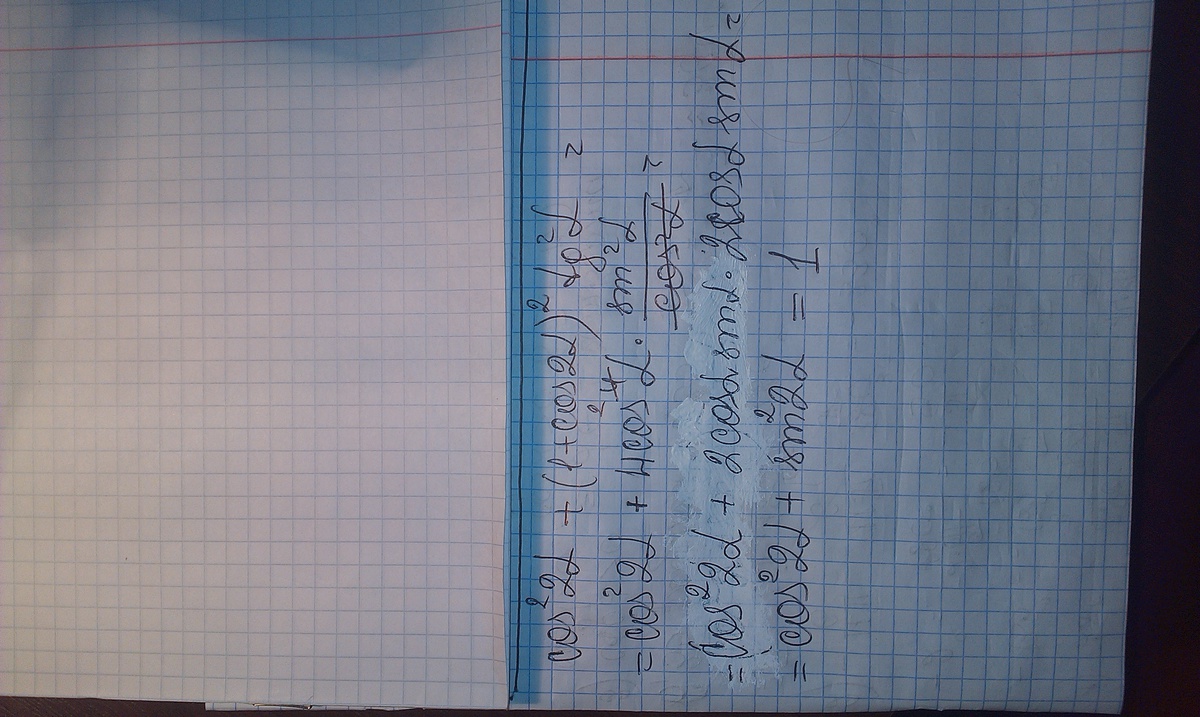 cos²2α + (1+cos2α)² tg²α =
= cos²2α + 4cos²⁴α · sin²α / cos²α =
= cos²2α + 2cosα sinα · 2cosα sinα =
= cos²2α + sin²2α = 1